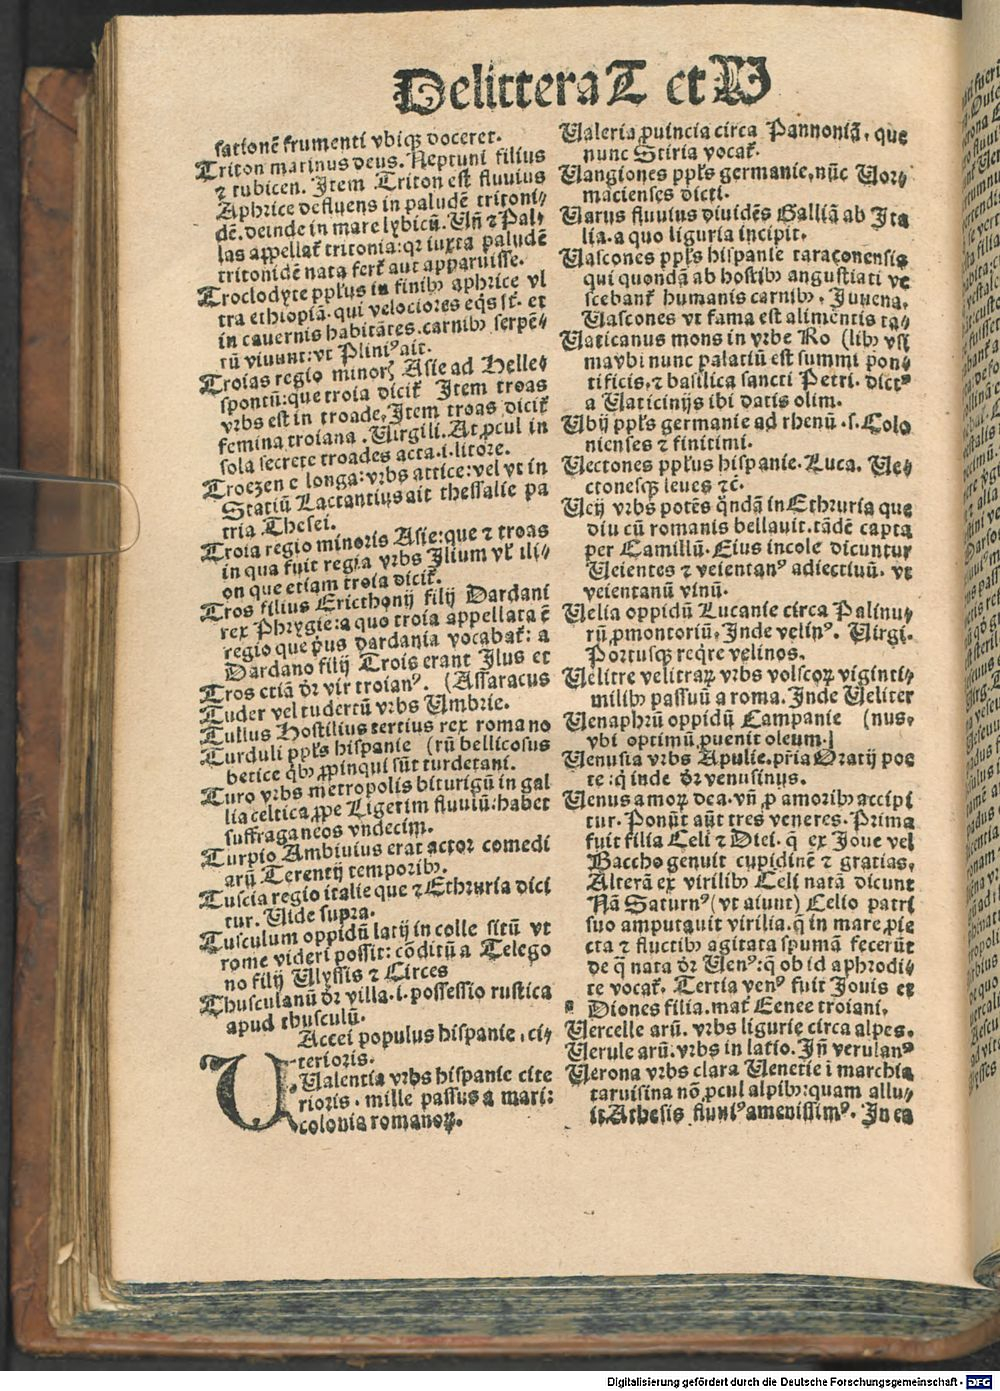 De littera T et V
sationē frumenti vbiqꝫ doceret.
Triton marinus deus. Neptuni filius
⁊ tubicen. Item Triton est fluuius
Aphrice defluens in paludē tritoni⸗
dē. deinde in mare lybicū. Vñ ⁊ Pal⸗
las appellat᷑ tritonia: qꝛ iuxta paludē
tritonidē nata fert᷑ aut apparuisse.
Troclodyte ppl'us in finibꝰ aphrice vl
tra ethiopiā. qui velociores eq̄s st̄. et
in cauernis habitātes. carnibꝫ serpē⸗
tū viuunt: vt Pliniꝰ ait.
Troias regio minorꝭ Asie ad Helles
spontū: que troia dicit᷑ Item troas
vrbs est in troade. Item troas dicit᷑
femina troiana. Virgili. At ꝓcul in
sola secrete troades acta .i. litore.
Troezen e longa: vrbs attice: vel vt in
Statiū Lactantius ait thessalie pa
tria Thesei.
Troia regio minoris Asie: que ⁊ troas
in qua fuit regia vrbs Ilium vl' ili⸗
on que etiam troia dicit᷑.
Tros filius Ericthonij filij Dardani
rex Phrygie: a quo troia appellata ē
regio que p̄us dardania vocabat᷑: a
Dardano filij Trois erant Ilus et
Tros etiā dr̄ vir troianꝰ. (Assaracus
Tuder vel tudertū vrbs Vmbrie.
Tullus Hostilius tertius rex romano
Turduli ppl's hispanie (rū bellicosus
betice qbꝫ ꝓpinqui sūt turdetani.
Turo vrbs metropolis biturigū in gal
lia celtica ꝓpe Ligerim fluuiū: habet
suffraganeos vndecim.
Turpio Ambiuius erat actor comedi
arū Terentij temporibꝫ.
Tuscia regio italie que ⁊ Ethruria dici
tur. Vide supra.
Tusculum oppidū latij in colle sitū vt
rome videri possit: cōditū a Telego
no filij Vlyssis ⁊ Circes
Thusculanū dr̄ villa .i. possessio rustica
apud thusculū.
VAccei populus hispanie. ci⸗
terioris.
Valentia vrbs hispanie cite
rioris. mille passus a mari:
colonia romanoꝝ.
Valeria ꝓuincia circa Pannoniā, que
nunc Stiria vocat᷑.
Vangiones ppl's germanie, nūc Vor⸗
macienses dicti.
Varus fluuius diuidēs Galliā ab Ita
lia. a quo liguria incipit.
Vascones ppl's hispanie taraconensis
qui quondā ab hostibꝫ angustiati ve
scebant᷑ humanis carnibꝫ. Juuena.
Vascones vt fama est alimentis ta⸗
Vaticanus mons in vrbe Ro (libꝫ vsi
ma vbi nunc palatiū est summi pon⸗
tificis, ⁊ basilica sancti Petri. dictꝰ
a Vaticinijs ibi datis olim.
Vbij ppl's germanie ad rhenū .s. Colo
nienses ⁊ finitimi.
Vectones ppl'us hispanie. Luca. Ve⸗
ctonesqꝫ leues ⁊c̄.
Veij vrbs potēs q̄ndā in Ethruria que
diu cū romanis bellauit. tādē capta
per Camillū. Eius incole dicuntur
Veientes ⁊ veientanꝰ adiectiuū. vt
veientanū vinū.
Velia oppidū Lucanie circa Palinu⸗
rū ꝓmontoriū, Inde velinꝰ. Virgi.
Portusqꝫ reqre velinos.
Velitre velitraꝝ vrbs volscoꝝ viginti⸗
milibꝫ passuū a roma. Inde Veliter
Venaphrū oppidū Campanie (nus.
vbi optimū ꝓuenit oleum.
Venusia vrbs Apulie. pr̄ia Oratij poe
te: q̄ inde dr̄ venusinus.
Venus amoꝝ dea. vñ ꝓ amoribꝫ accipi
tur. Ponūt aūt tres veneres. Prima
fuit filia Celi ⁊ Diei. q̄ ex Joue vel
Baccho genuit cupidinē ⁊ gratias.
Alterā ex virilibꝫ Celi natā dicunt
Nā Saturnꝰ (vt aiunt) Celio patri
suo amputauit virilia. q̄ in mare ꝓie
cta ⁊ fluctibꝫ agitata spumā fecerūt
de q̄ nata dr̄ Venꝰ: q̄ ob id aphrodi⸗
te vocat᷑. Tertia venꝰ fuit Jouis et
Diones filia. mat᷑ Eenee troiani.
Vercelle arū. vrbs ligurie circa alpes.
Verule arū. vrbs in latio. Iñ verulanꝰ
Verona vrbs clara Venetie i marchia
taruisina nō ꝓcul alpibꝫ: quam allu⸗
it Athesis fluuiꝰ amenissimꝰ. In ea
Digitalisierung gefördert durch die Deutsche Forschungsgemeinschaft - DFG